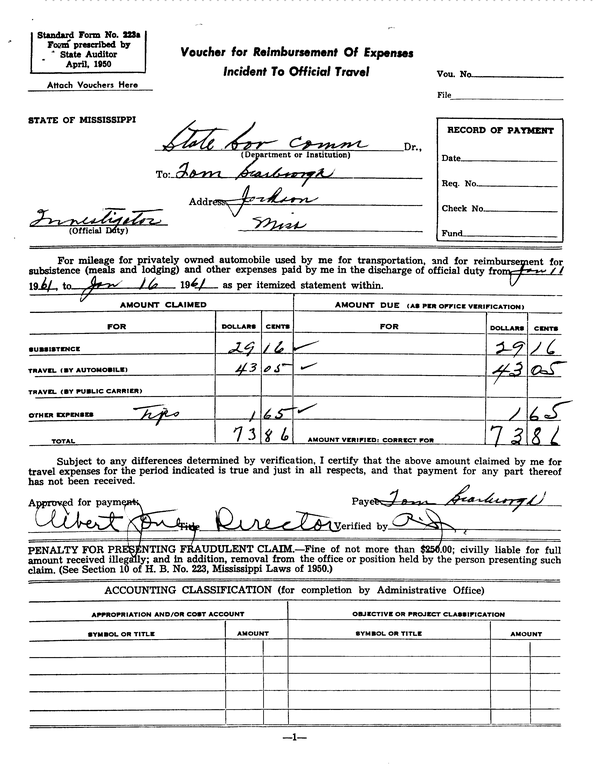 Standard Form No. 223a
Form prescribed by
State Auditor
April, 1950
Attach Vouchers Here
Voucher for Reimbursement Of Expenses
Incident To Official Travel
Vou. No.
File
STATE OF MISSISSIPPI
State Sov Comm Dr.,
(Department or Institution)
To: Tom Scarbrough
Address Jackson
Miss
Investigator
(Official Duty)
RECORD OF PAYMENT
Date
Req. No.
Check No.
Fund
For mileage for privately owned automobile used by me for transportation, and for reimbursement for
subsistence (meals and lodging) and other expenses paid by me in the discharge of official duty from Jan 11
1961, to Jan 16 1961 as per itemized statement within.
AMOUNT CLAIMED AMOUNT DUE (AS PER OFFICE VERIFICATION)
FOR DOLLARS CENTS FOR DOLLARS CENTS
SUBSISTENCE 29 16 ✓ 29 16
TRAVEL (BY AUTOMOBILE) 43 05 ✓ 43 05
TRAVEL (BY PUBLIC CARRIER)
OTHER EXPENSES Tips 1 65 ✓ 1 65
TOTAL 73 86 AMOUNT VERIFIED: CORRECT FOR 73 86
Subject to any differences determined by verification, I certify that the above amount claimed by me for
travel expenses for the period indicated is true and just in all respects, and that payment for any part thereof
has not been received.
Approved for payment: Payee Tom Scarbrough
Albert Jones Title Director Verified by
PENALTY FOR PRESENTING FRAUDULENT CLAIM.—Fine of not more than $250.00; civilly liable for full
amount received illegally; and in addition, removal from the office or position held by the person presenting such
claim. (See Section 10 of H. B. No. 223, Mississippi Laws of 1950.)
ACCOUNTING CLASSIFICATION (for completion by Administrative Office)
APPROPRIATION AND/OR COST ACCOUNT OBJECTIVE OR PROJECT CLASSIFICATION
SYMBOL OR TITLE AMOUNT SYMBOL OR TITLE AMOUNT
—1—